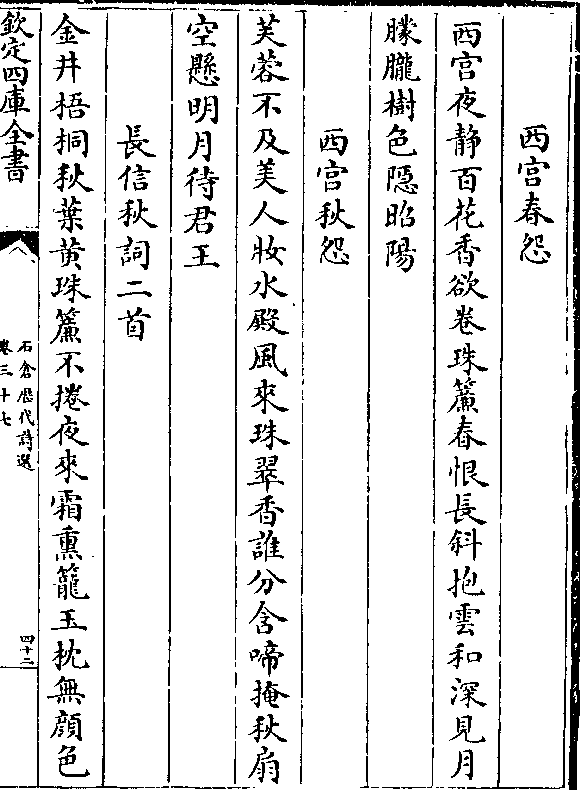 西宫春怨
西宫夜静百花香欲卷珠簾春恨長斜抱雲和深見月
朦朧樹色隠昭陽
西宫秋怨
芙蓉不及美人妝水殿風來珠翠香誰分含啼掩秋扇
空懸明月待君王
長信秋詞二首
金井梧桐秋葉黄珠簾不捲夜來霜熏籠玉枕無顔色
欽定四庫全書
石倉歴代詩選
卷三十七
四十二